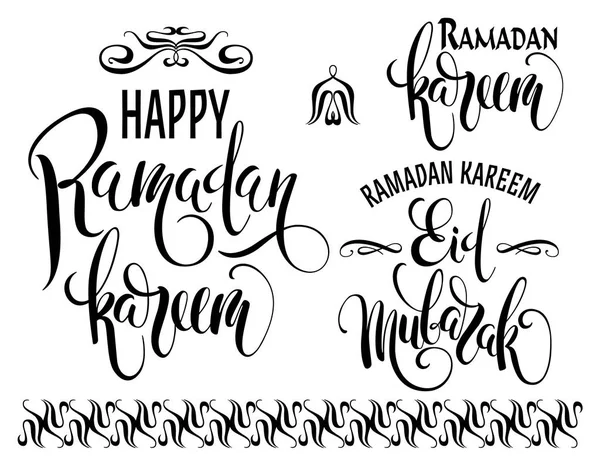 HAPPY
Ramadan
kareem
RAMADAN
kareem
RAMADAN KAREEM
Eid
Mubarak